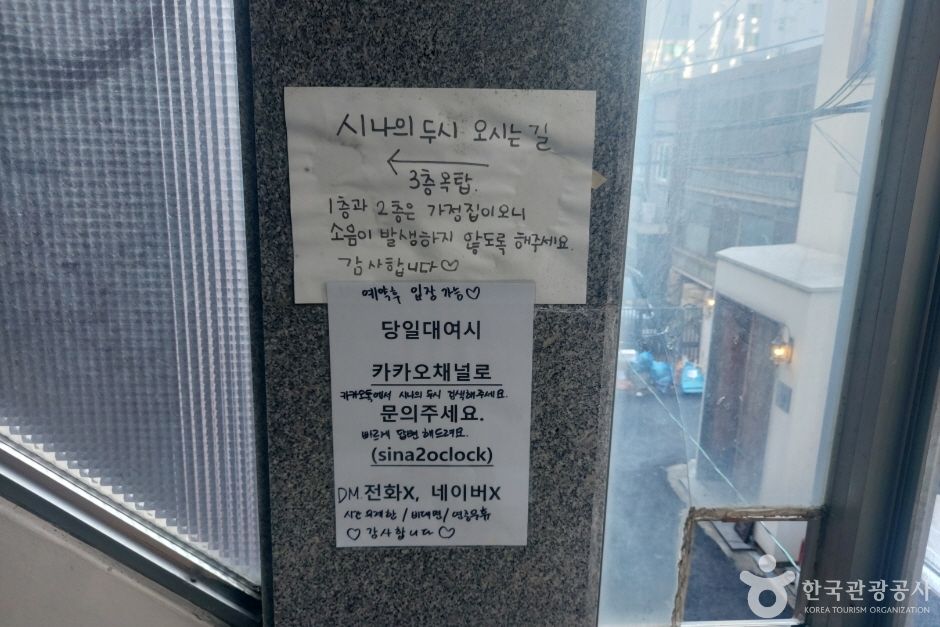 시나의 두시 오시는 길
←
3층옥탑.
1층과 2층은 가정집이오니
소음이 발생하지 않도록 해주세요.
감사합니다♡
예약후 입장 가능♡
당일대여시
카카오채널로
카카오톡에서 시나의 두시 검색해주세요.
문의주세요.
빠르게 답변 해드려요.
(sina2oclock)
DM. 전화X, 네이버X
시간 무제한 / 비대면 / 연중무휴
♡ 감사합니다 ♡
한국관광공사
KOREA TOURISM ORGANIZATION